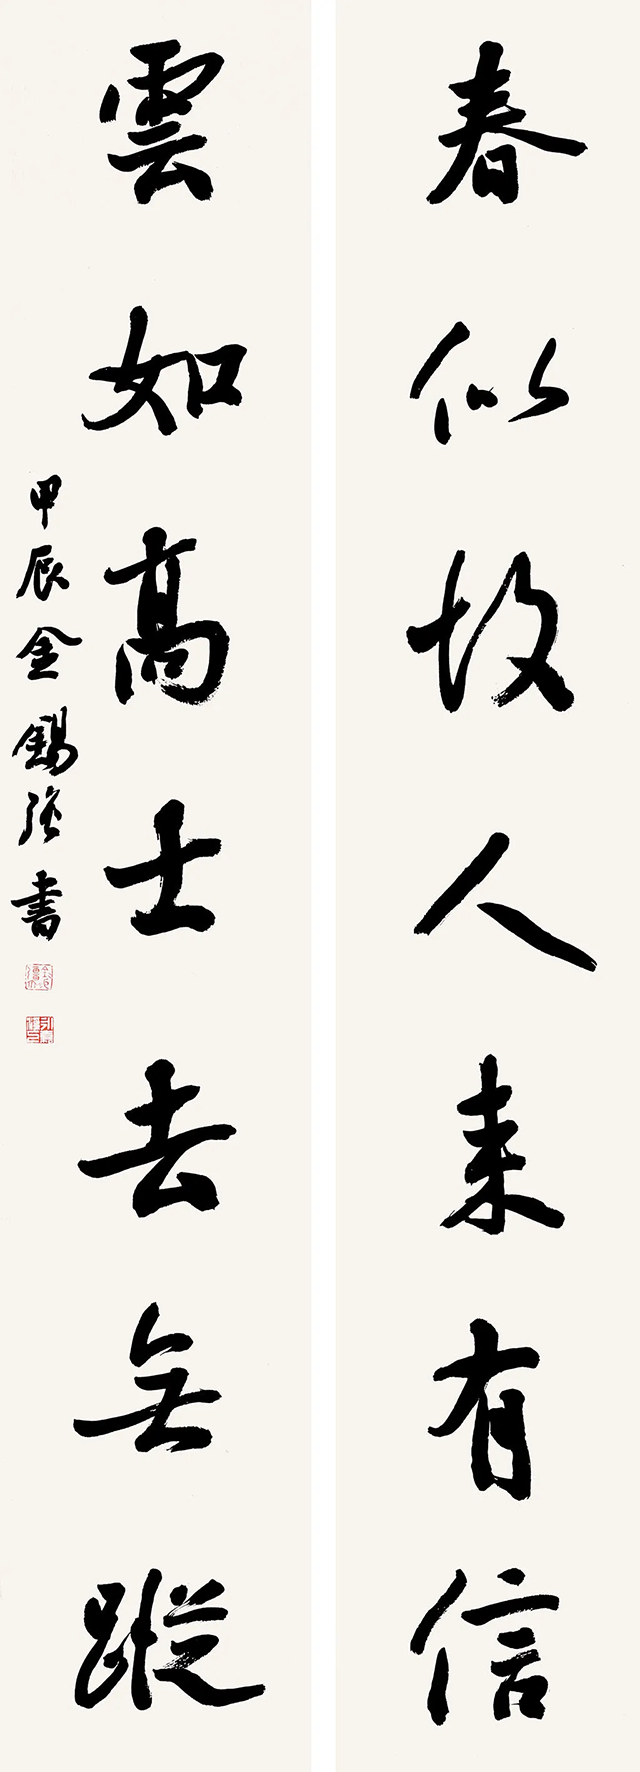 春似故人来有信
雲如高士去無蹤
甲辰金錫強書